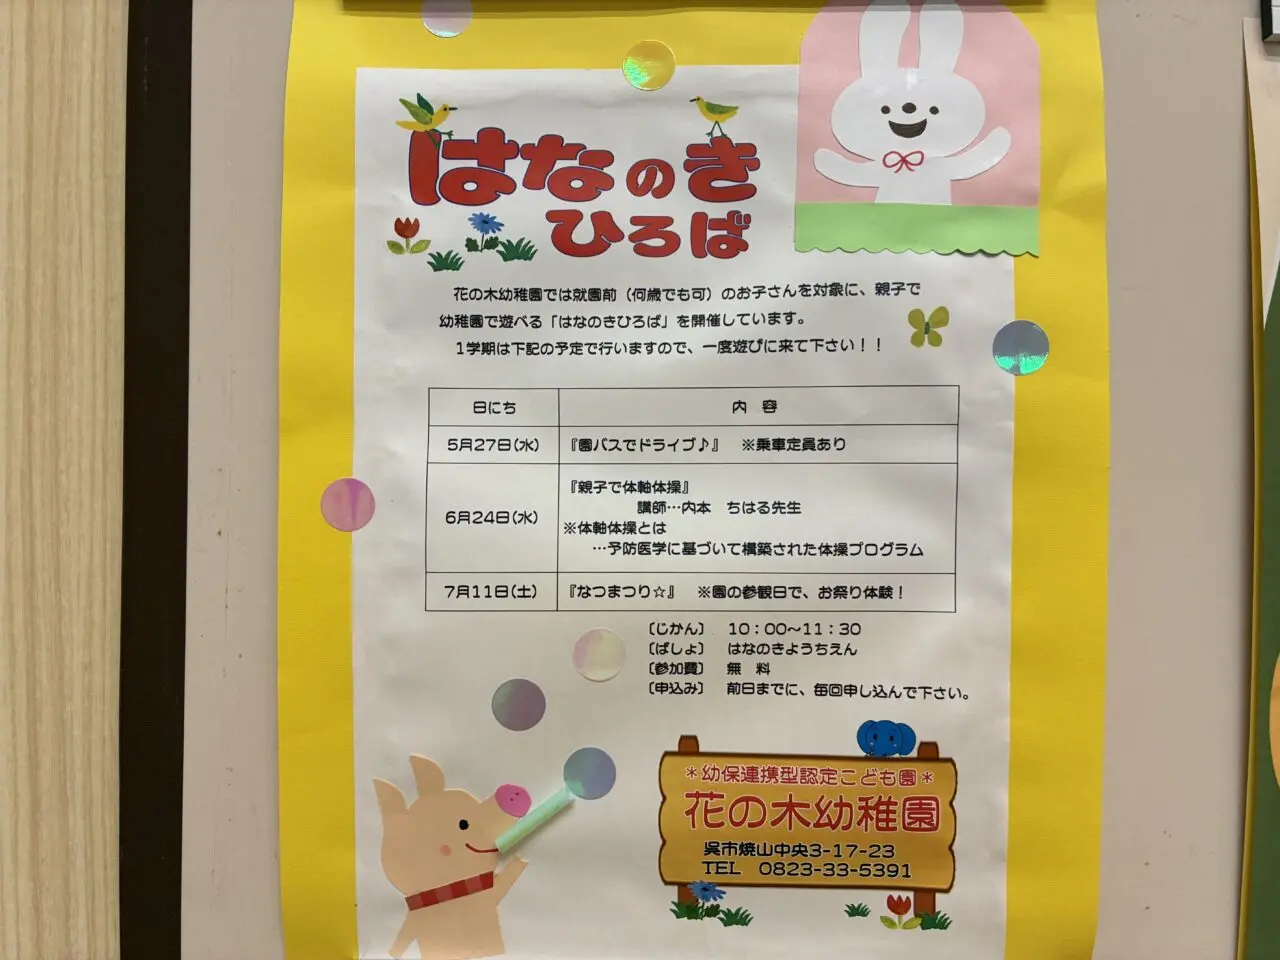 はなのき
ひろば
花の木幼稚園では就園前（何歳でも可）のお子さんを対象に、親子で
幼稚園で遊べる「はなのきひろば」を開催しています。
1学期は下記の予定で行いますので、一度遊びに来て下さい！！
日にち 内 容
5月27日(水) 『園バスでドライブ♪』 ※乗車定員あり
6月24日(水) 『親子で体軸体操』
講師…内本 ちはる先生
※体軸体操とは
…予防医学に基づいて構築された体操プログラム
7月11日(土) 『なつまつり☆』 ※園の参観日で、お祭り体験！
〔じかん〕 10：00～11：30
〔ばしょ〕 はなのきようちえん
〔参加費〕 無 料
〔申込み〕 前日までに、毎回申し込んで下さい。
＊幼保連携型認定こども園＊
花の木幼稚園
呉市焼山中央3-17-23
TEL 0823-33-5391